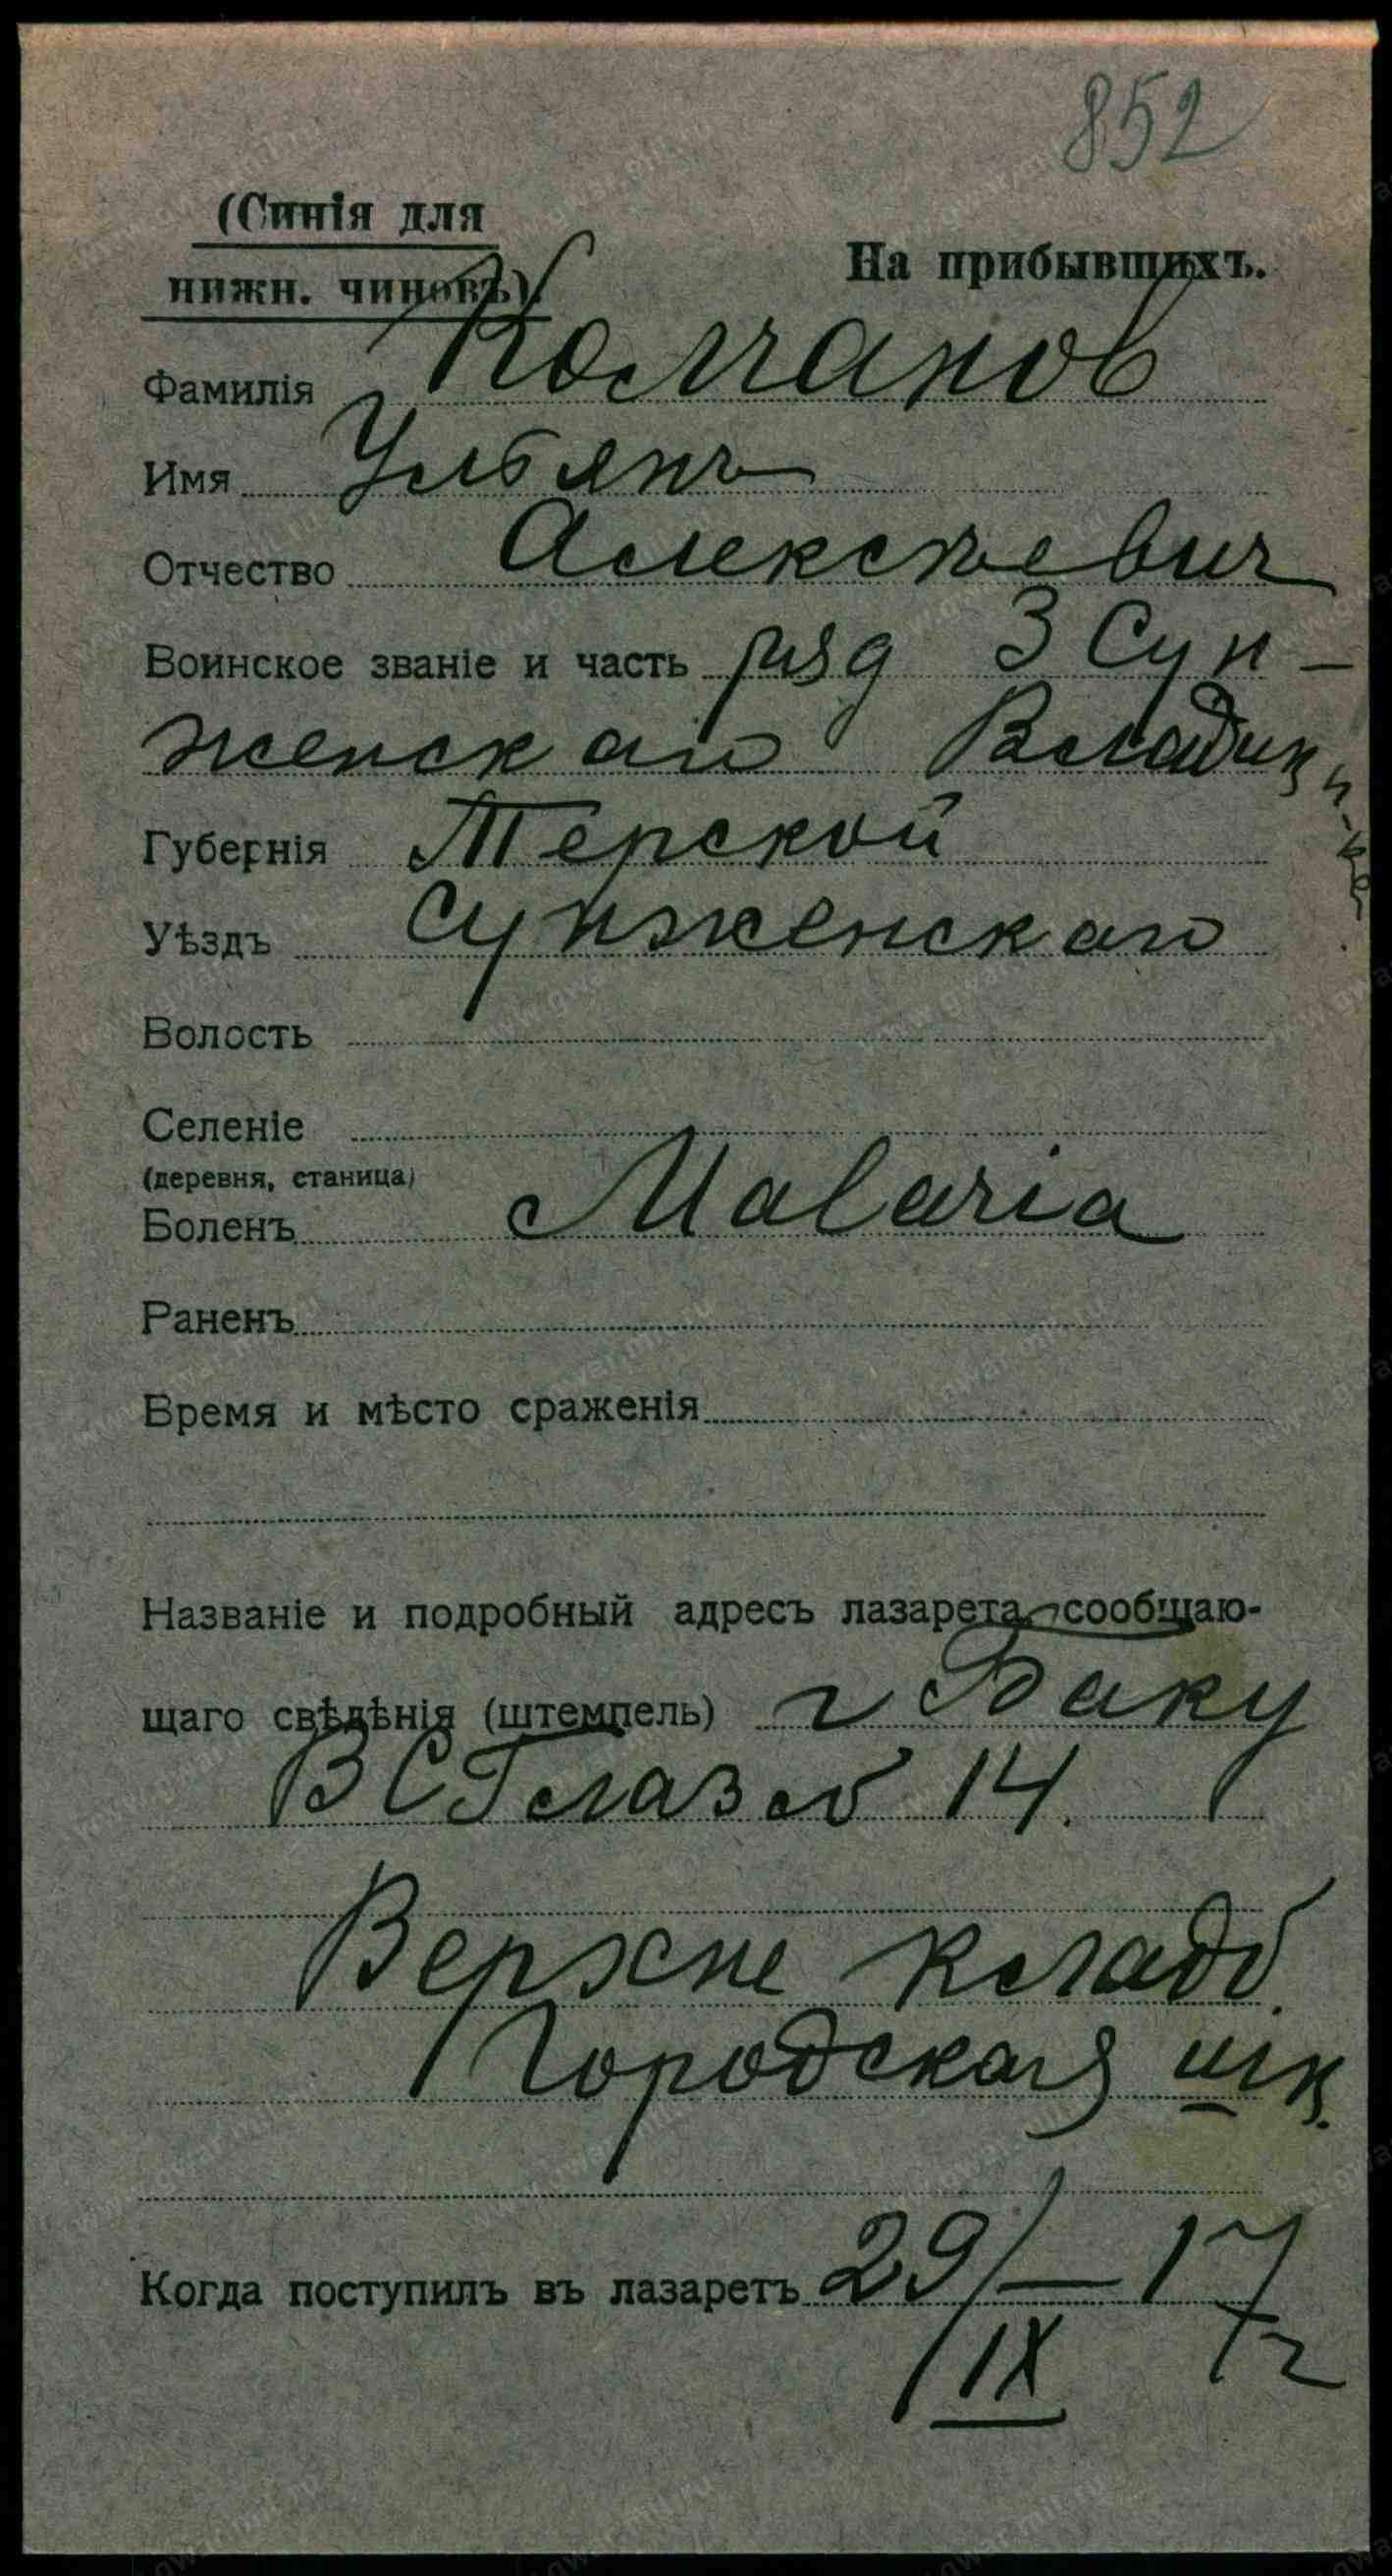 852
(Синія для
нижн. чиновъ).
На прибывшихъ.
Фамилія Колчанов
Имя Ульянъ
Отчество Алексѣевич
Воинское званіе и часть ряд 3 Сун-
женскаго Владик
Губернія Терской
Уѣздъ Сунженскаго
Волость
Селеніе
(деревня, станица)
Боленъ Malaria
Раненъ
Время и мѣсто сраженія
Названіе и подробный адресъ лазарета, сообщаю-
щаго свѣдѣнія (штемпель) г Баку
ВСГ лаз 14.
Верхне кладб.
Городская шк.
Когда поступилъ въ лазаретъ 29/IX — 17 г